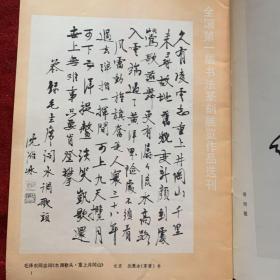 全国第一届书法篆刻展览作品选刊
久有凌雲志重上井冈山千里
来尋故地旧貌变新颜到處
莺歌燕舞更有潺潺流水高路
入雲端过了黄洋界險處不须看
風雷动旌旗奋是人寰三十八年
过去弹指一挥间可上九天揽月
可下五洋捉鳖谈笑凯歌还
世上无难事只要肯登攀
恭録毛主席词水调歌头
沈雁冰
毛泽东同志词《水调歌头·重上井冈山》 北京 沈雁冰(茅盾)书